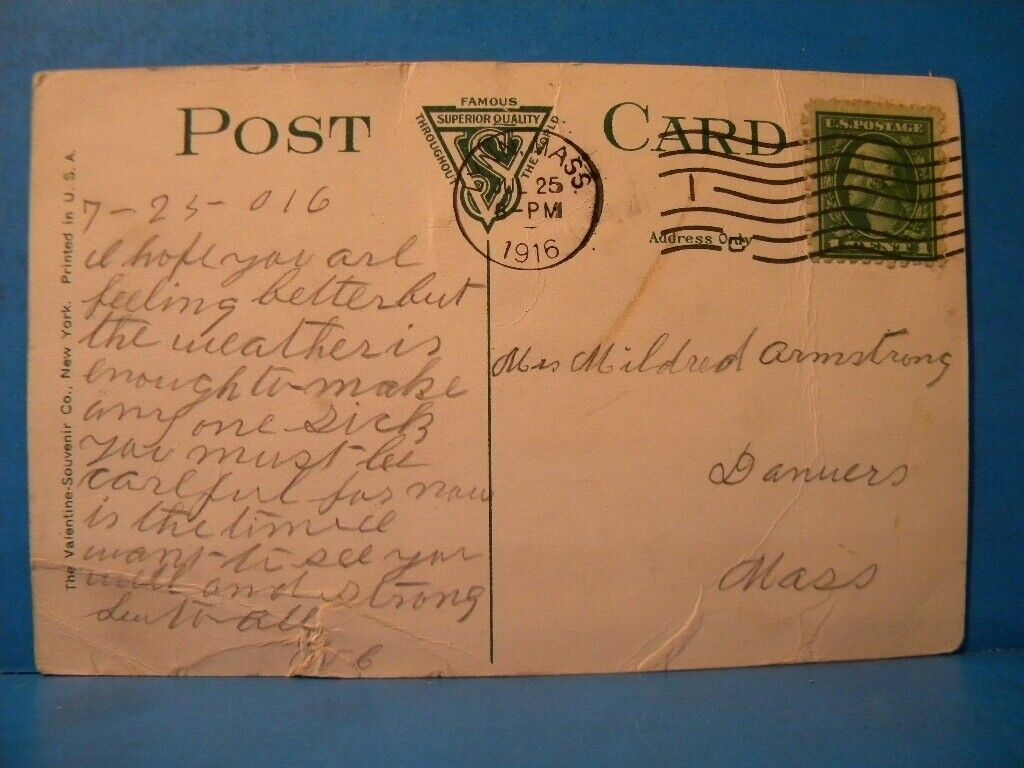 POST CARD
FAMOUS
SUPERIOR QUALITY
THROUGHOUT
THE WORLD
MASS.
25
8-PM
1916
U.S. POSTAGE
1 CENT 1
Address Only
The Valentine-Souvenir Co., New York. Printed in U. S. A.
7-25-016
I hope you are
feeling better but
the weather is
enough to make
any one sick
you must be
careful for now
is the time
want to see you
well and strong
to all
Mrs Mildred Armstrong
Danvers
Mass